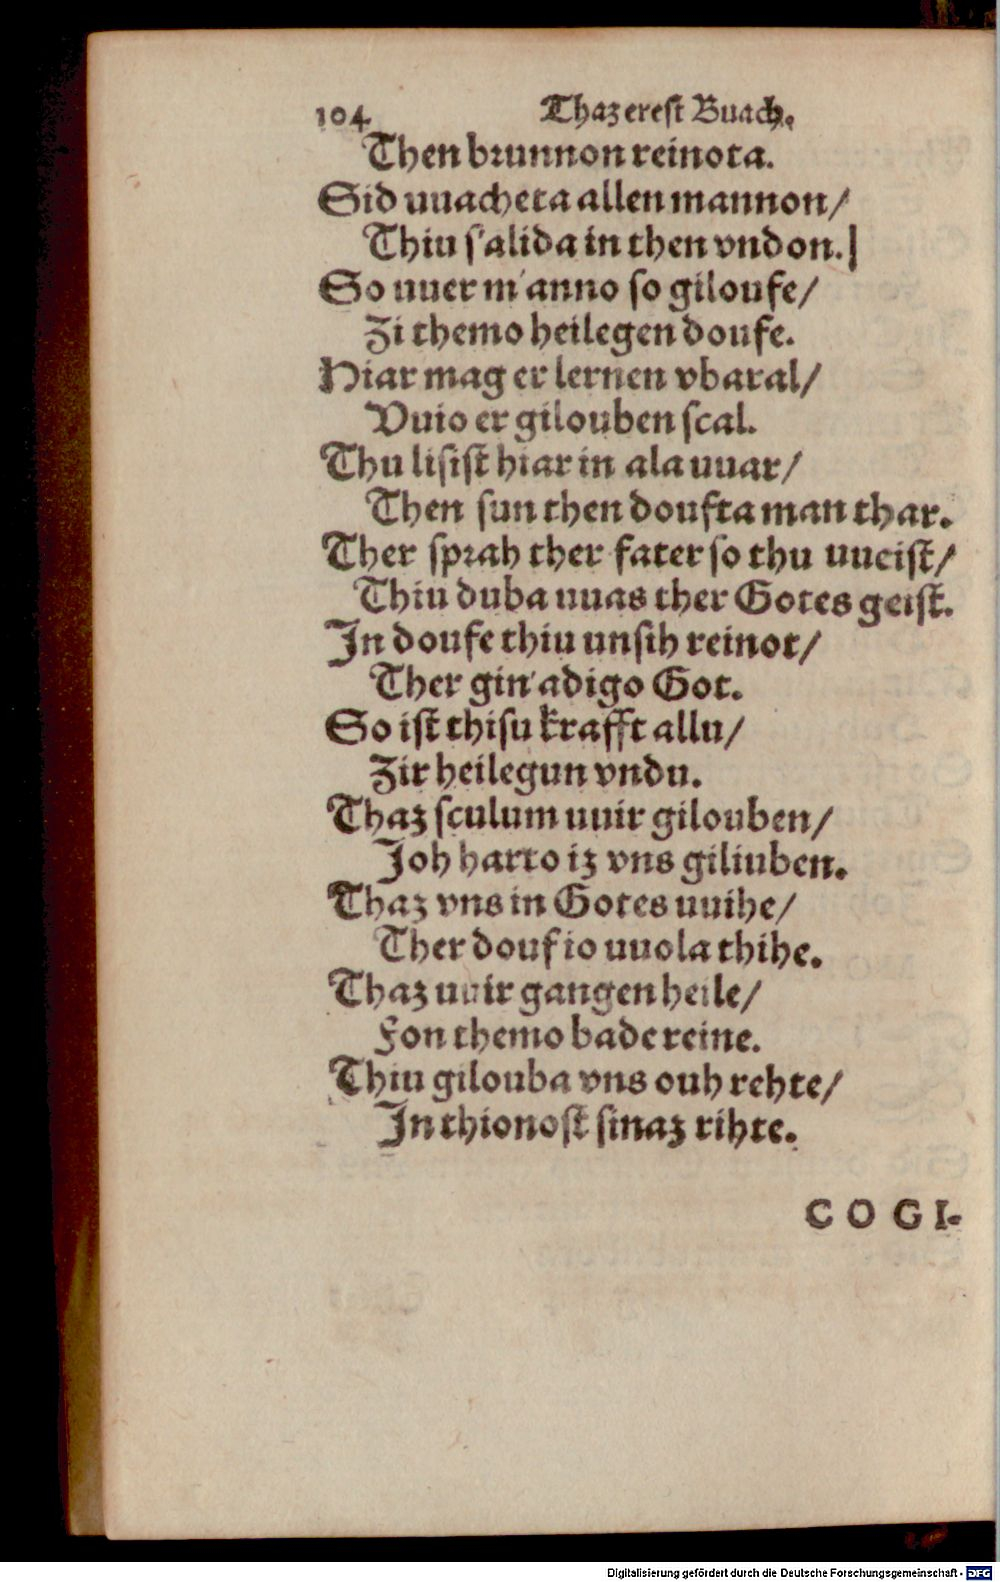 104 Thaz erest Buach.
Then brunnon reinota.
Sid uuacheta allen mannon/
Thiu s'alida in then vndon.]
So uuer m'anno so giloufe/
Zi themo heilegen doufe.
Hiar mag er lernen vbaral/
Vuio er gilouben scal.
Thu lisist hiar in ala uuar/
Then sun then doufta man thar.
Ther sprah ther fater so thu uueist/
Thiu duba uuas ther Gotes geist.
In doufe thiu unsih reinot/
Ther gin'adigo Got.
So ist thisu krafft allu/
Zir heilegun vndu.
Thaz sculum uuir gilouben/
Joh harto iz vns giliuben.
Thaz vns in Gotes uuihe/
Ther douf io uuola thihe.
Thaz uuir gangen heile/
Fon themo bade reine.
Thiu gilouba vns ouh rehte/
In thionost sinaz rihte.
COGI-
Digitalisierung gefördert durch die Deutsche Forschungsgemeinschaft - DFG